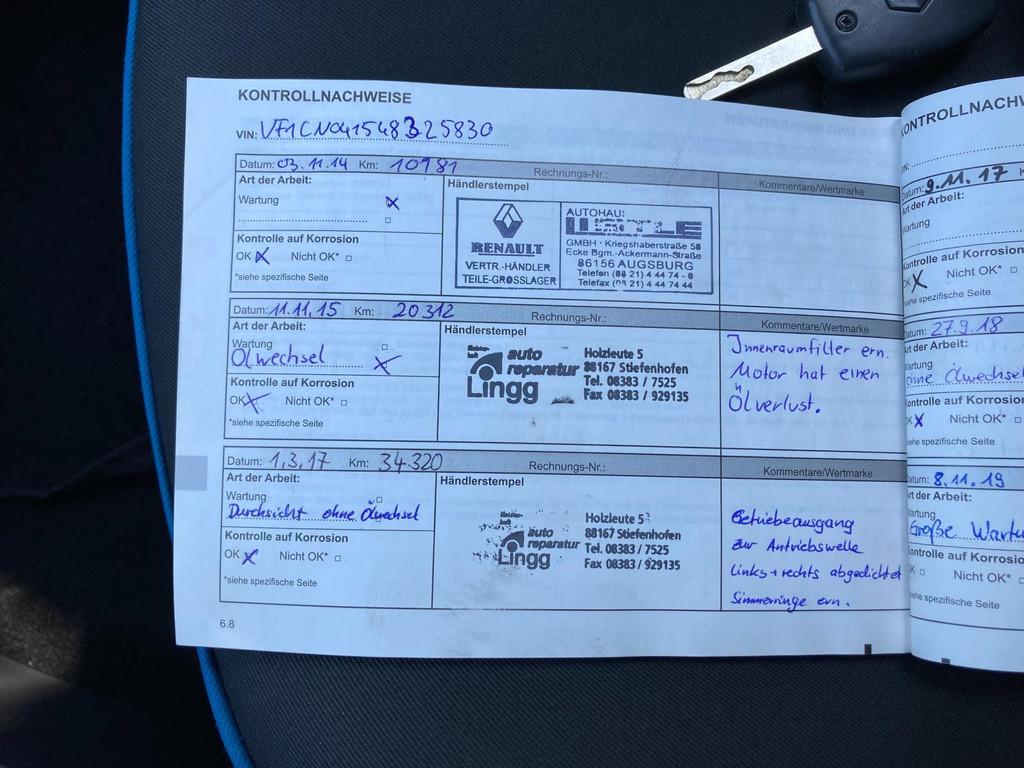 KONTROLLNACHWEISE
VIN: VF1CN041548325830
Datum: 03.11.14 Km: 10981 Rechnungs-Nr.:
Art der Arbeit:
Händlerstempel
Kommentare/Wertmarke
Wartung
Kontrolle auf Korrosion
OK Nicht OK*
*siehe spezifische Seite
RENAULT
VERTR.-HÄNDLER
TEILE-GROSSLAGER
AUTOHAUS
GMBH · Kriegshaberstraße 58
Ecke Bgm.-Ackermann-Straße
86156 AUGSBURG
Telefon (08 21) 4 44 74 - 0
Telefax (08 21) 4 44 74 44
Datum: 11.11.15 Km: 20312 Rechnungs-Nr.:
Art der Arbeit:
Händlerstempel
Kommentare/Wertmarke
Wartung
Ölwechsel
Kontrolle auf Korrosion
OK Nicht OK*
*siehe spezifische Seite
auto
reparatur
Lingg
Holzleute 5
88167 Stiefenhofen
Tel. 08383 / 7525
Fax 08383 / 929135
Innenraumfilter ern.
Motor hat einen
Ölverlust.
Datum: 1,3,17 Km: 34.320 Rechnungs-Nr.:
Art der Arbeit:
Händlerstempel
Kommentare/Wertmarke
Wartung
Durchsicht ohne Ölwechsel
Kontrolle auf Korrosion
OK Nicht OK*
*siehe spezifische Seite
auto
reparatur
Lingg
Holzleute 5
88167 Stiefenhofen
Tel. 08383 / 7525
Fax 08383 / 929135
Getriebeausgang
zur Antriebswelle
links + rechts abgedichtet
Simmerringe ern.
6.8
KONTROLLNACHW
Datum: 9.11.17
Art der Arbeit:
Wartung
Kontrolle auf Korrosion
OK Nicht OK*
siehe spezifische Seite
Datum: 27.9.18
Art der Arbeit:
Wartung
ohne Ölwechsel
Kontrolle auf Korrosion
OK Nicht OK*
siehe spezifische Seite
Datum: 8.11.19
Art der Arbeit:
Wartung
Große Wartu
Kontrolle auf Korrosio
OK Nicht OK*
siehe spezifische Seite